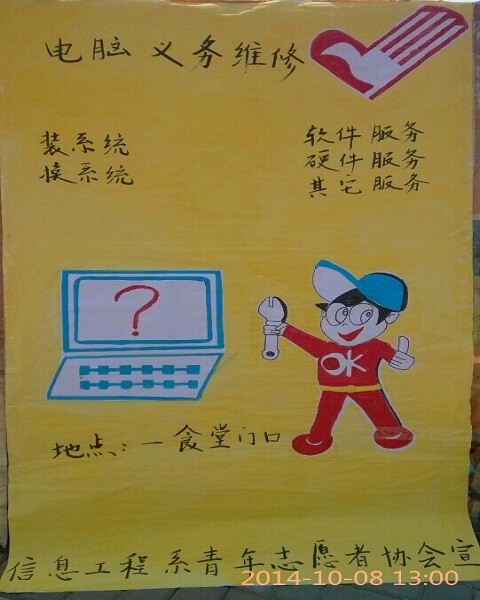 电脑 义务维修
装系统
换系统
软件 服务
硬件 服务
其它 服务
?
OK
地点:一食堂门口
信息工程系青年志愿者协会宣
2014-10-08 13:00